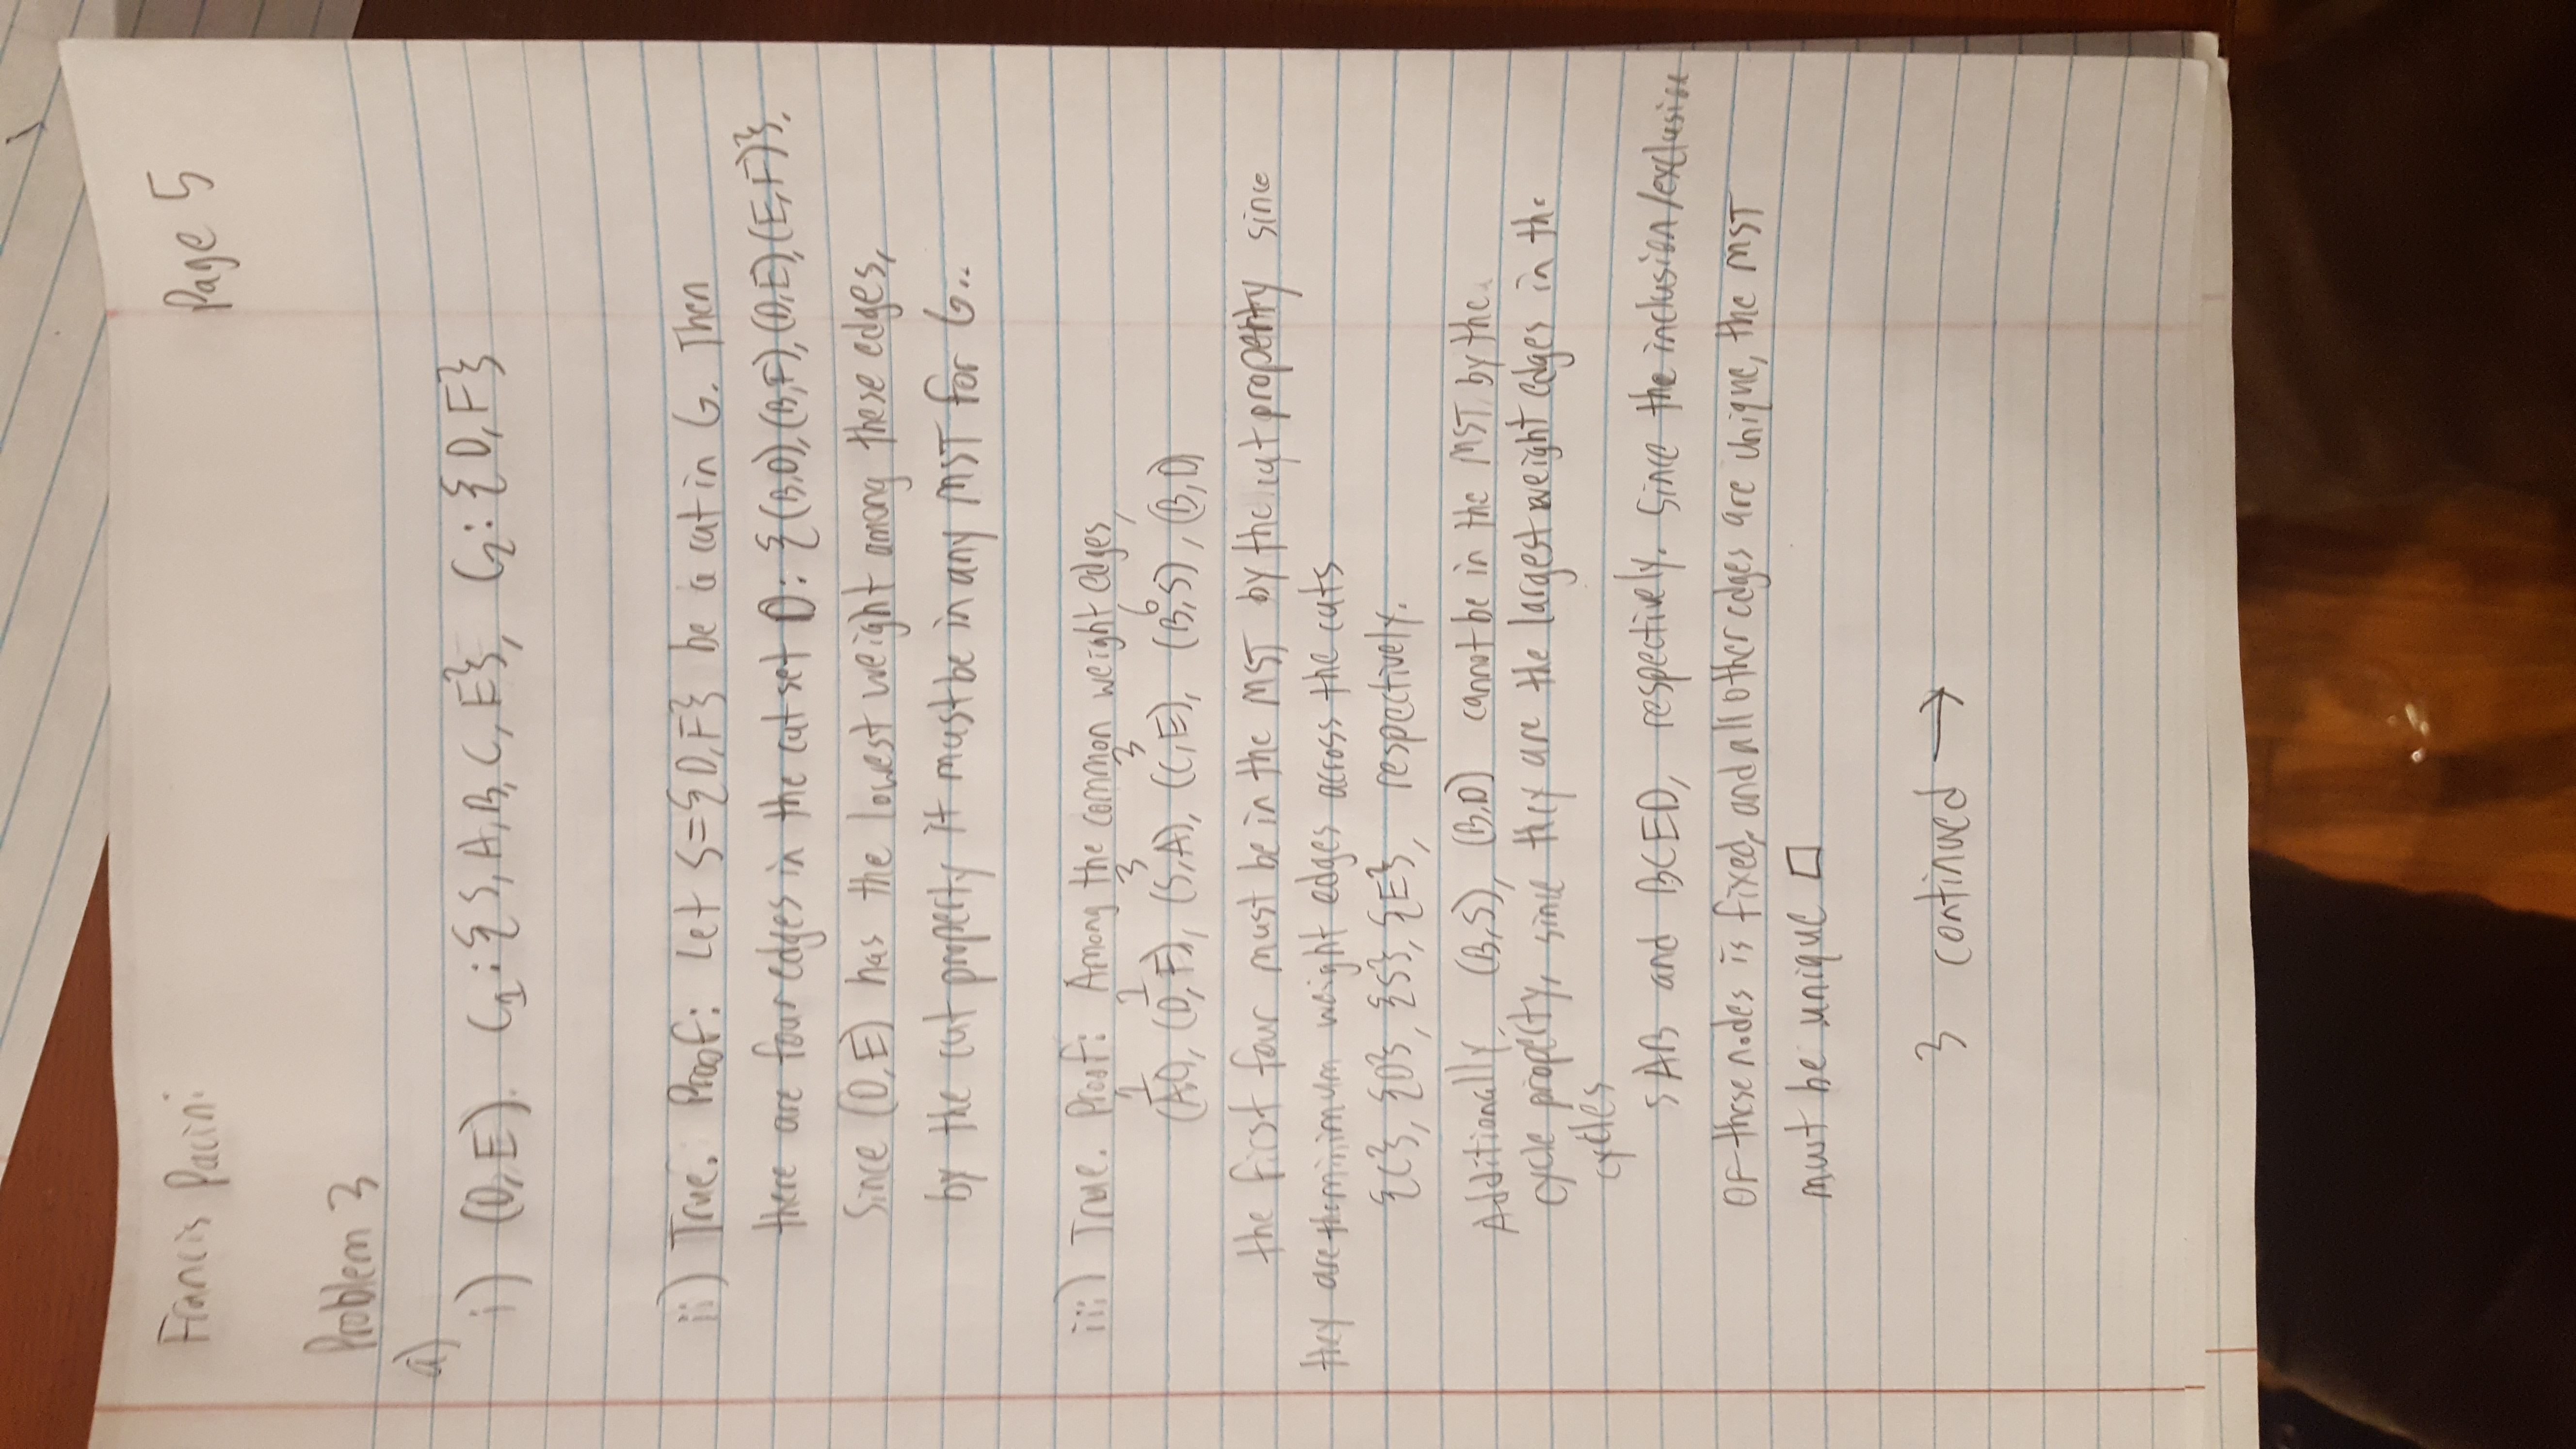 Francis Pacini
Page 5
Problem 3
a)
i) (D,E). C1: {S, A, B, C, E}, C2: {D, F}
ii) True. Proof: Let S={D,F} be a cut in G. Then
there are four edges in the cutset D: {(B,D), (B,F), (D,E), (E,F)}.
Since (D,E) has the lowest weight among these edges,
by the cut property it must be in any MST for G..
iii) True. Proof: Among the common weight edges,
1 1 3 3 6
(A,C), (D,F), (S,A), (C,E), (B,S), (B,D)
the first four must be in the MST by the cut property since
they are the minimum weight edges across the cuts
{C}, {D}, {S}, {E}, respectively.
Additionally, (B,S), (B,D) cannot be in the MST by the
cycle property, since they are the largest weight edges in the
cycles
SAB and BCED, respectively. Since the inclusion/exclusion
of these nodes is fixed, and all other edges are unique, the MST
must be unique □
3 continued →